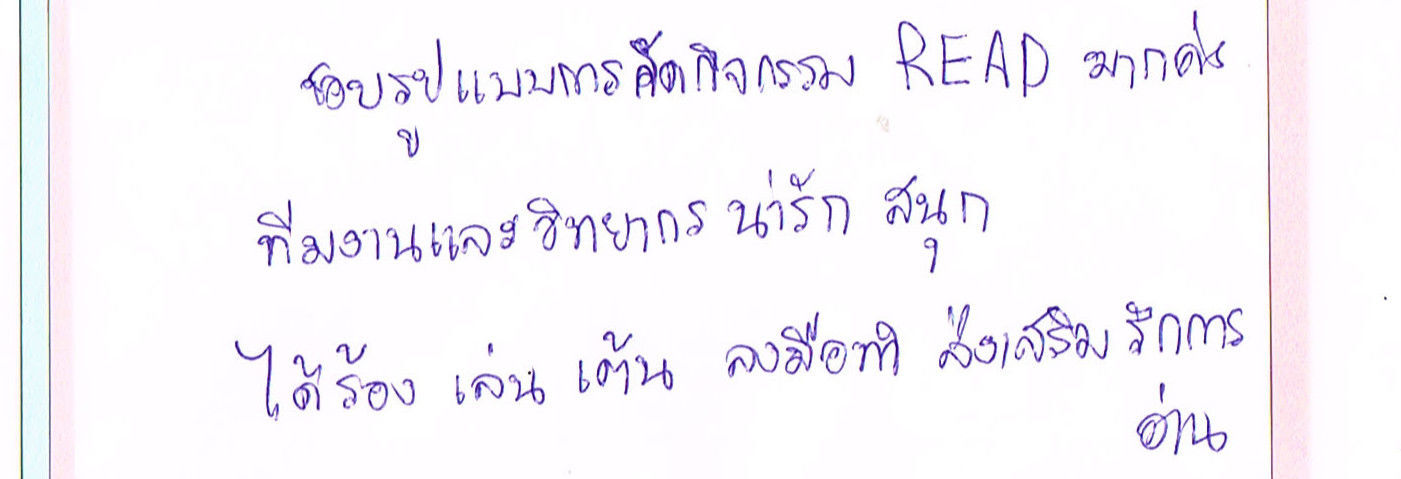 ชอบรูปแบบการจัดกิจกรรม READ มากค่ะ
ทีมงานและวิทยากร น่ารัก สนุก
ได้ร้อง เล่น เต้น ลงมือทำ ส่งเสริม รักการ
อ่าน